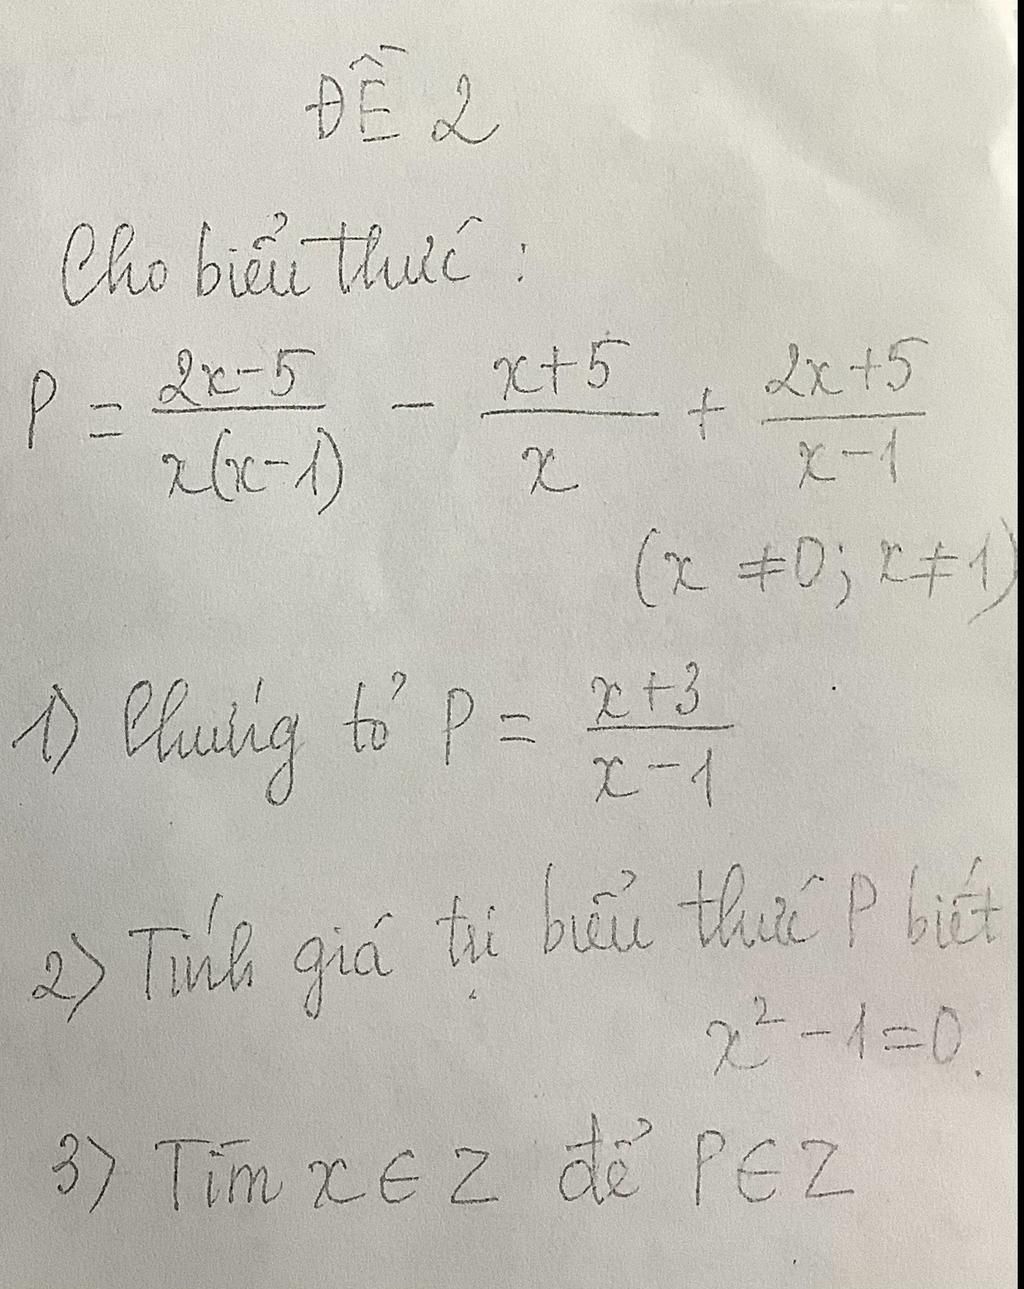 ĐỀ 2
Cho biểu thức :
P = \frac{2x-5}{x(x-1)} - \frac{x+5}{x} + \frac{2x+5}{x-1}
(x ≠ 0; x ≠ 1)
1) Chứng tỏ P = \frac{x+3}{x-1}
2) Tính giá trị biểu thức P biết
x² - 1 = 0.
3) Tìm x ∈ Z để P ∈ Z